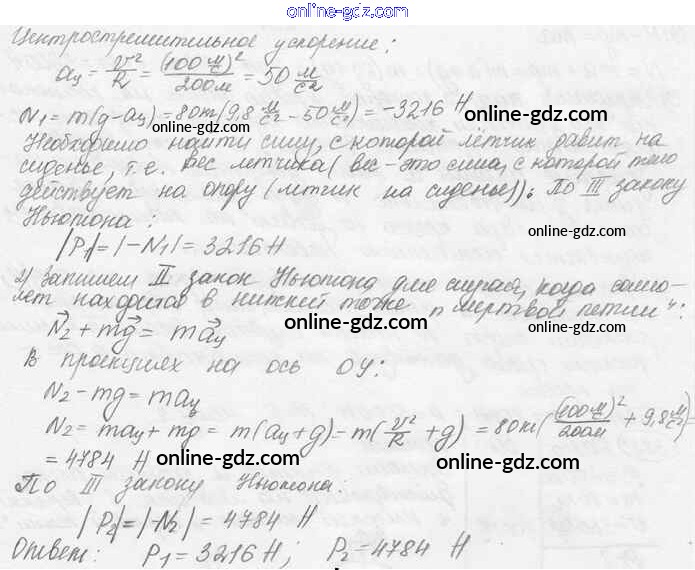 online-gdz.com
Центростремительное ускорение:
aц = v²/R = (100 м/с)²/200м = 50 м/с²
N₁ = m(g-aц) = 80m(9,8 м/с² - 50 м/с²) = -3216 Н
online-gdz.com online-gdz.com
Необходимо найти силу, с которой лётчик давит на
сиденье, т.е. вес летчика (вес - это сила, с которой тело
действует на опору (летчик на сиденье)). По III закону
Ньютона:
|P₁| = |-N₁| = 3216 Н
online-gdz.com
2) Запишем II закон Ньютона для случая, когда само-
лет находится в нижней точке "мертвой петли":
N⃗₂ + mg⃗ = ma⃗ц
online-gdz.com online-gdz.com
В проекциях на ось OY:
N₂ - mg = maц
N₂ = maц + mg = m(aц + g) = m(v²/R + g) = 80кг((100 м/с)²/200м + 9,8 м/с²) =
= 4784 Н
online-gdz.com online-gdz.com
По III закону Ньютона:
|P₂| = |N₂| = 4784 Н
online-gdz.com
Ответ: P₁ = 3216 Н; P₂ = 4784 Н
online-gdz.com